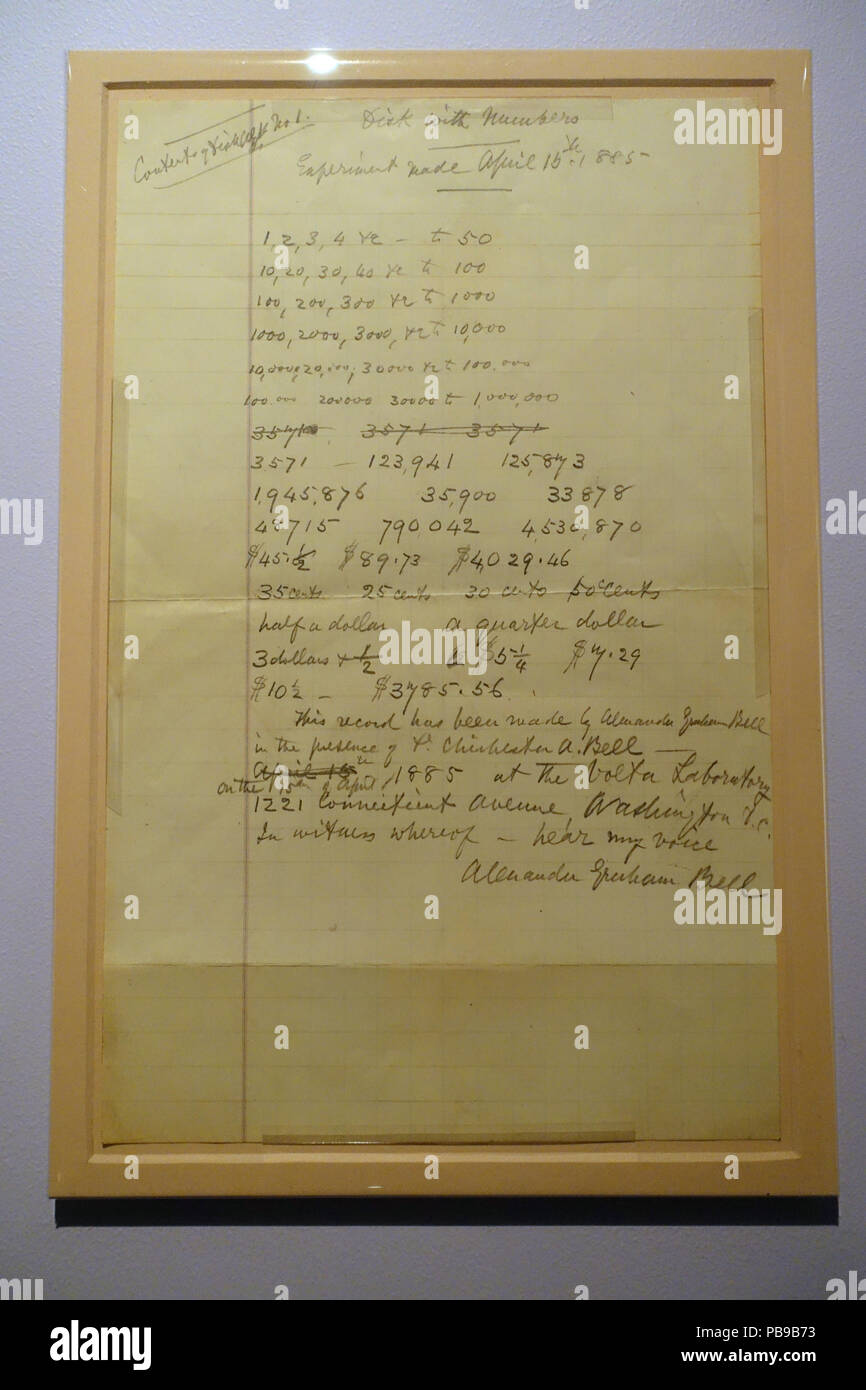 Contents of Disk No 1.
Disk with Numbers
Experiment made April 15th 1885
1, 2, 3, 4 &c – to 50
10, 20, 30, 40 &c to 100
100, 200, 300 &c to 1000
1000, 2000, 3000, &c to 10,000
10,000, 20,000, 30000 &c to 100.000
100.000 200000 30000 to 1,000,000
3571 3571
3571 – 123,941 125,873
1,945,876 35,900 33878
48715 790042 4,530,870
$45.½ $89.73 $4,029.46
35 cents 25 cents 30 cents 50 cents
half a dollar a quarter dollar
3 dollars & ½ $5¼ $7.29
$10½ – $3785.56.
This record has been made by Alexander Graham Bell
in the presence of Dr. Chichester A. Bell –
on the 15th of April, 1885 at the Volta Laboratory
1221 Connecticut Avenue, Washington D.C.
In witness whereof – hear my voice
Alexander Graham Bell
a
alamy
alamy
Image ID: PB9B73
www.alamy.com